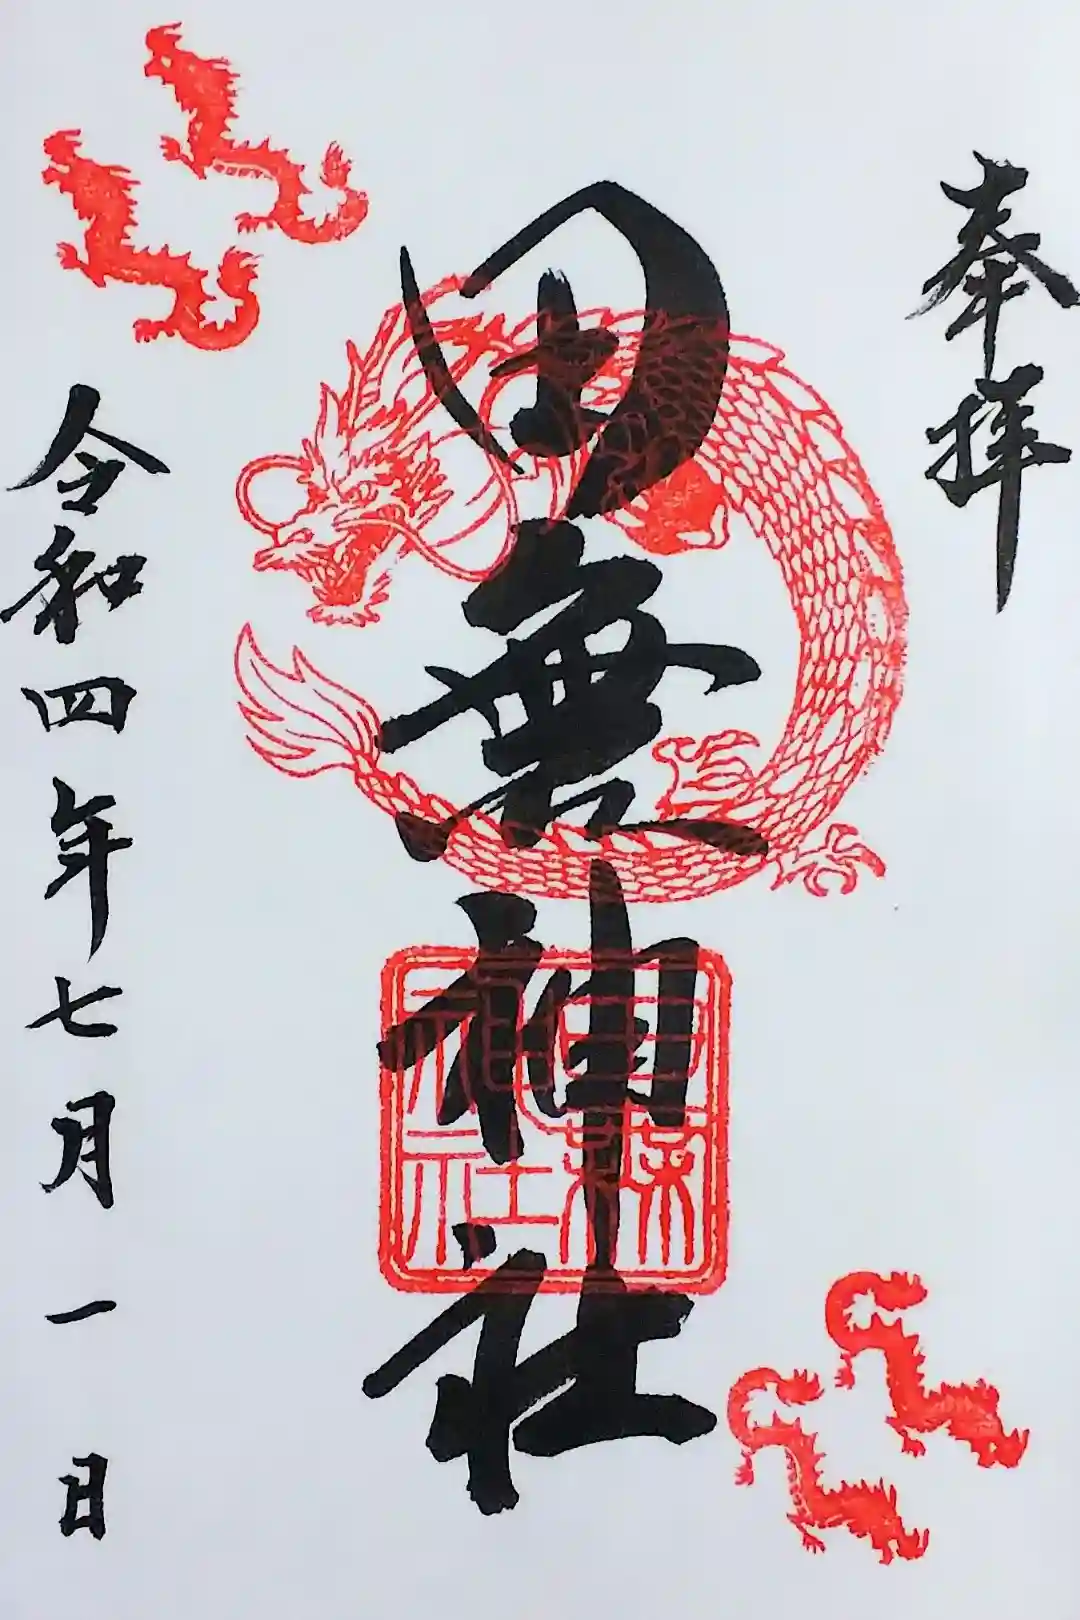 奉拝
田無神社
田無神社
令和四年七月一日